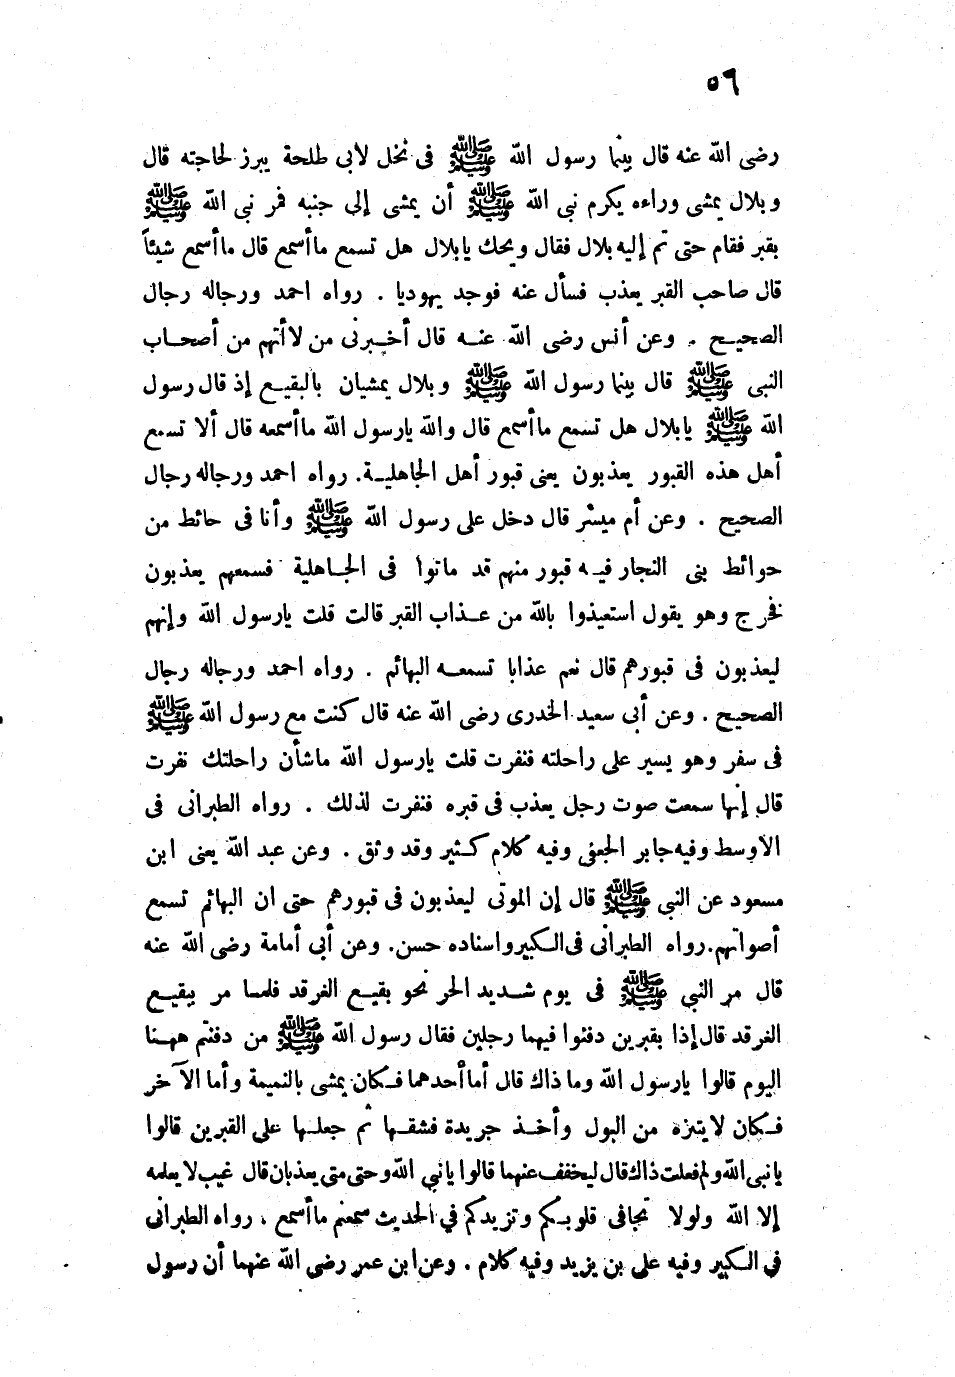 ٥٦
رضى الله عنه قال بينما رسول الله ﷺ فى نخل لأبى طلحة يبرز لحاجته قال
وبلال يمشى وراءه يكرم نبى الله ﷺ أن يمشى إلى جنبه فمر نبى الله ﷺ
بقبر فقام حتى تم إليه بلال فقال ويحك يابلال هل تسمع ماأسمع قال ماأسمع شيئاً
قال صاحب القبر يعذب فسأل عنه فوجد يهوديا . رواه احمد ورجاله رجال
الصحيح . وعن أنس رضى الله عنه قال أخبرنى من لاأتهم من أصحاب
النبى ﷺ قال بينما رسول الله ﷺ وبلال يمشيان بالبقيع إذ قال رسول
الله ﷺ يابلال هل تسمع ماأسمع قال والله يارسول الله ماأسمعه قال ألا تسمع
أهل هذه القبور يعذبون يعنى قبور أهل الجاهلية. رواه احمد ورجاله رجال
الصحيح . وعن أم ميسر قال دخل على رسول الله ﷺ وأنا فى حائط من
حوائط بنى النجار فيه قبور منهم قد ماتوا فى الجاهلية فسمعهم يعذبون
فخرج وهو يقول استعيذوا بالله من عذاب القبر قالت قلت يارسول الله وإنهم
ليعذبون فى قبورهم قال نعم عذابا تسمعه البهائم . رواه احمد ورجاله رجال
الصحيح . وعن أبى سعيد الخدرى رضى الله عنه قال كنت مع رسول الله ﷺ
فى سفر وهو يسير على راحلته فنفرت قلت يارسول الله ماشأن راحلتك نفرت
قال إنها سمعت صوت رجل يعذب فى قبره فنفرت لذلك . رواه الطبرانى فى
الاوسط وفيه جابر الجعفى وفيه كلام كثير وقد وثق . وعن عبد الله يعنى ابن
مسعود عن النبى ﷺ قال إن الموتى ليعذبون فى قبورهم حتى ان البهائم تسمع
أصواتهم. رواه الطبرانى فى الكبير واسناده حسن. وعن أبى أمامة رضى الله عنه
قال مر النبي ﷺ فى يوم شديد الحر نحو بقيع الغرقد فلما مر ببقيع
الغرقد قال إذا بقبرين دفنوا فيهما رجلين فقال رسول الله ﷺ من دفنتم ههنا
اليوم قالوا يارسول الله وما ذاك قال أما أحدهما فكان يمشى بالنميمة وأما الآخر
فكان لايتنزه من البول وأخذ جريدة فشقها ثم جعلها على القبرين قالوا
يانبى الله ولم فعلت ذاك قال ليخفف عنهما قالوا يانبي الله وحتى متى يعذبان قال غيب لايعلمه
إلا الله ولولا تجافى قلوبكم وتزيدكم في الحديث سمعتم ماأسمع . رواه الطبرانى
في الكبير وفيه على بن يزيد وفيه كلام . وعن ابن عمر رضى الله عنهما أن رسول